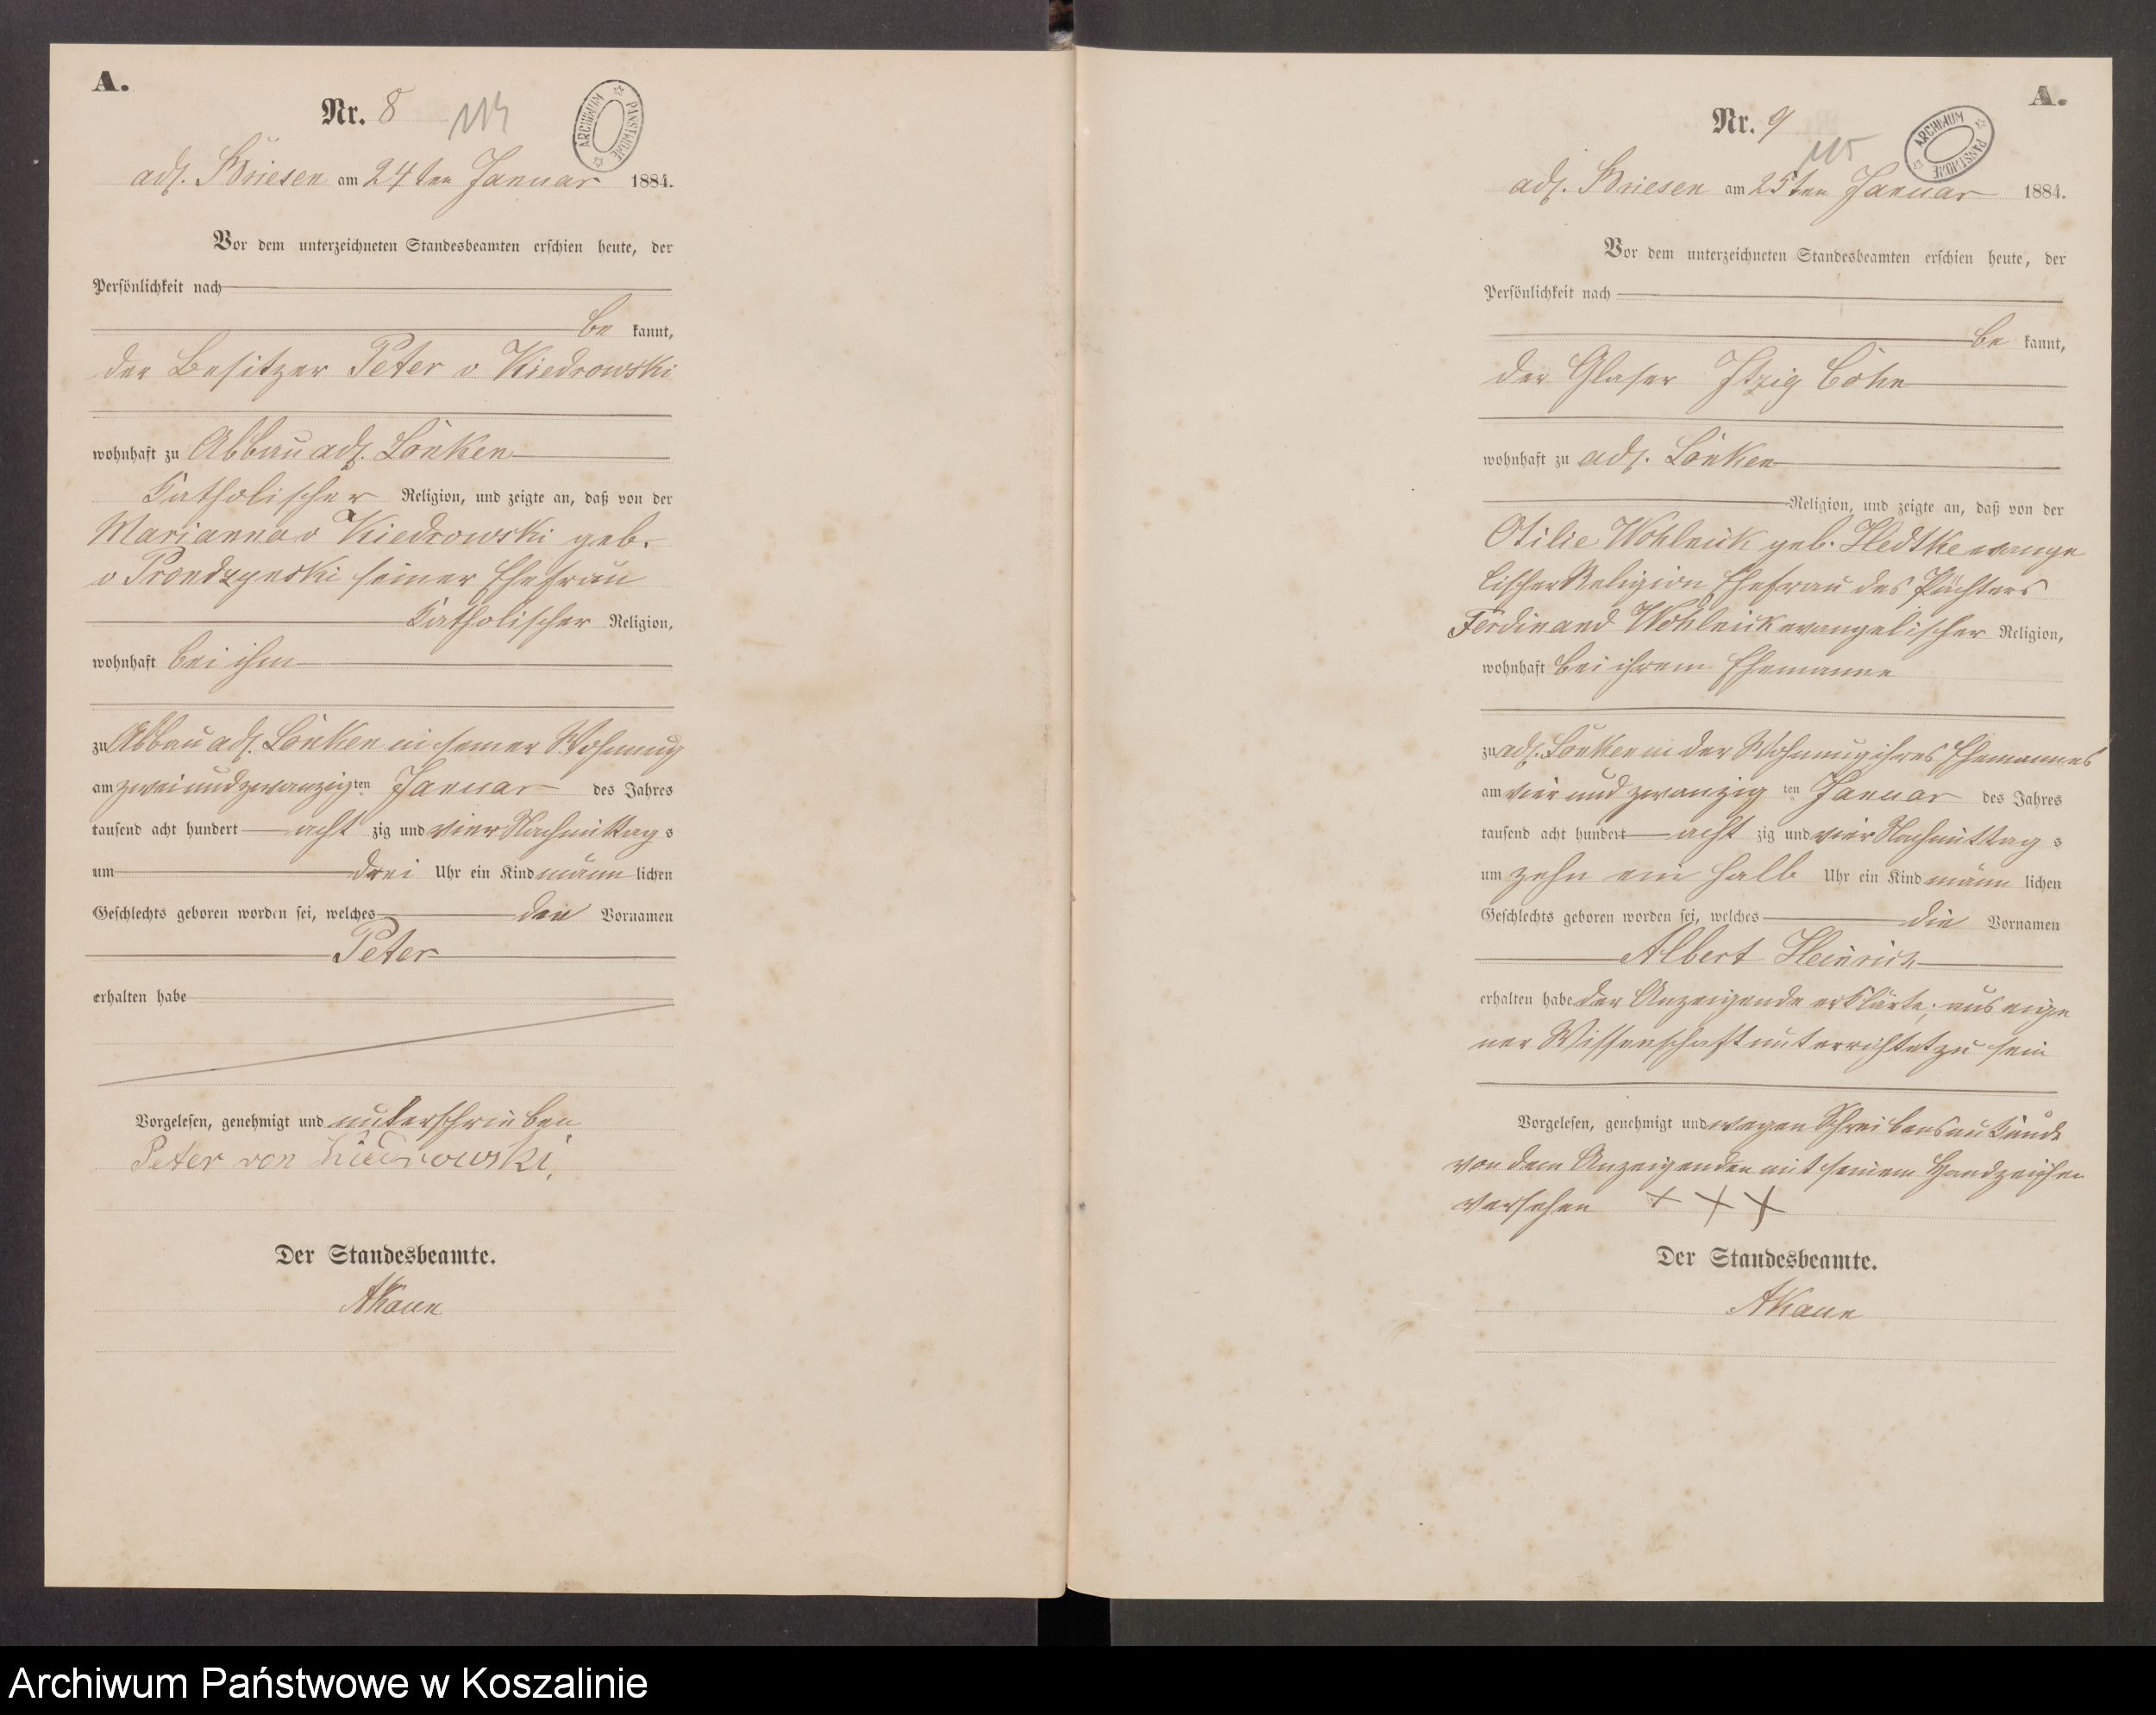 A.
Nr. 8
114
ARCHIWUM PAŃSTWOWE
adl. Briesen am 24ten Januar 1884.
Vor dem unterzeichneten Standesbeamten erschien heute, der
Persönlichkeit nach
be kannt,
der Besitzer Peter v Kiedrowski
wohnhaft zu Abbau adl. Lonken
Katholischer Religion, und zeigte an, daß von der
Marianna v Kiedrowski geb.
v Prondzynski seiner Ehefrau
Katholischer Religion,
wohnhaft bei ihm
zu Abbau adl. Lonken in seiner Wohnung
am zweiundzwanzigten Januar des Jahres
tausend acht hundert acht zig und vier Nachmittags
um drei Uhr ein Kind männlichen
Geschlechts geboren worden sei, welches den Vornamen
Peter
erhalten habe
Vorgelesen, genehmigt und unterschrieben
Peter von Kiedrowski,
Der Standesbeamte.
A.
Nr. 9
115
ARCHIWUM PAŃSTWOWE
adl. Briesen am 25ten Januar 1884.
Vor dem unterzeichneten Standesbeamten erschien heute, der
Persönlichkeit nach
be kannt,
der Glaser Itzig Cohn
wohnhaft zu adl. Lonken
Religion, und zeigte an, daß von der
Otilie geb. Hedtke evange
lischer Religion Ehefrau des Pächters
Ferdinand evangelischer Religion,
wohnhaft bei ihrem Ehemanne
zu adl. Lonken in der Wohnung ihres Ehemannes
am vier und zwanzig ten Januar des Jahres
tausend acht hundert acht zig und vier Nachmittag s
um zehn ein halb Uhr ein Kind männ lichen
Geschlechts geboren worden sei, welches die Vornamen
Albert Heinrich
erhalten habe der Anzeigende erklärte, aus eige
ner Wissenschaft unterrichtet zu sein
Vorgelesen, genehmigt und wegen Schreibensunkunde
von dem Anzeigenden mit seinem Handzeichen
versehen + + +
Der Standesbeamte.
Archiwum Państwowe w Koszalinie